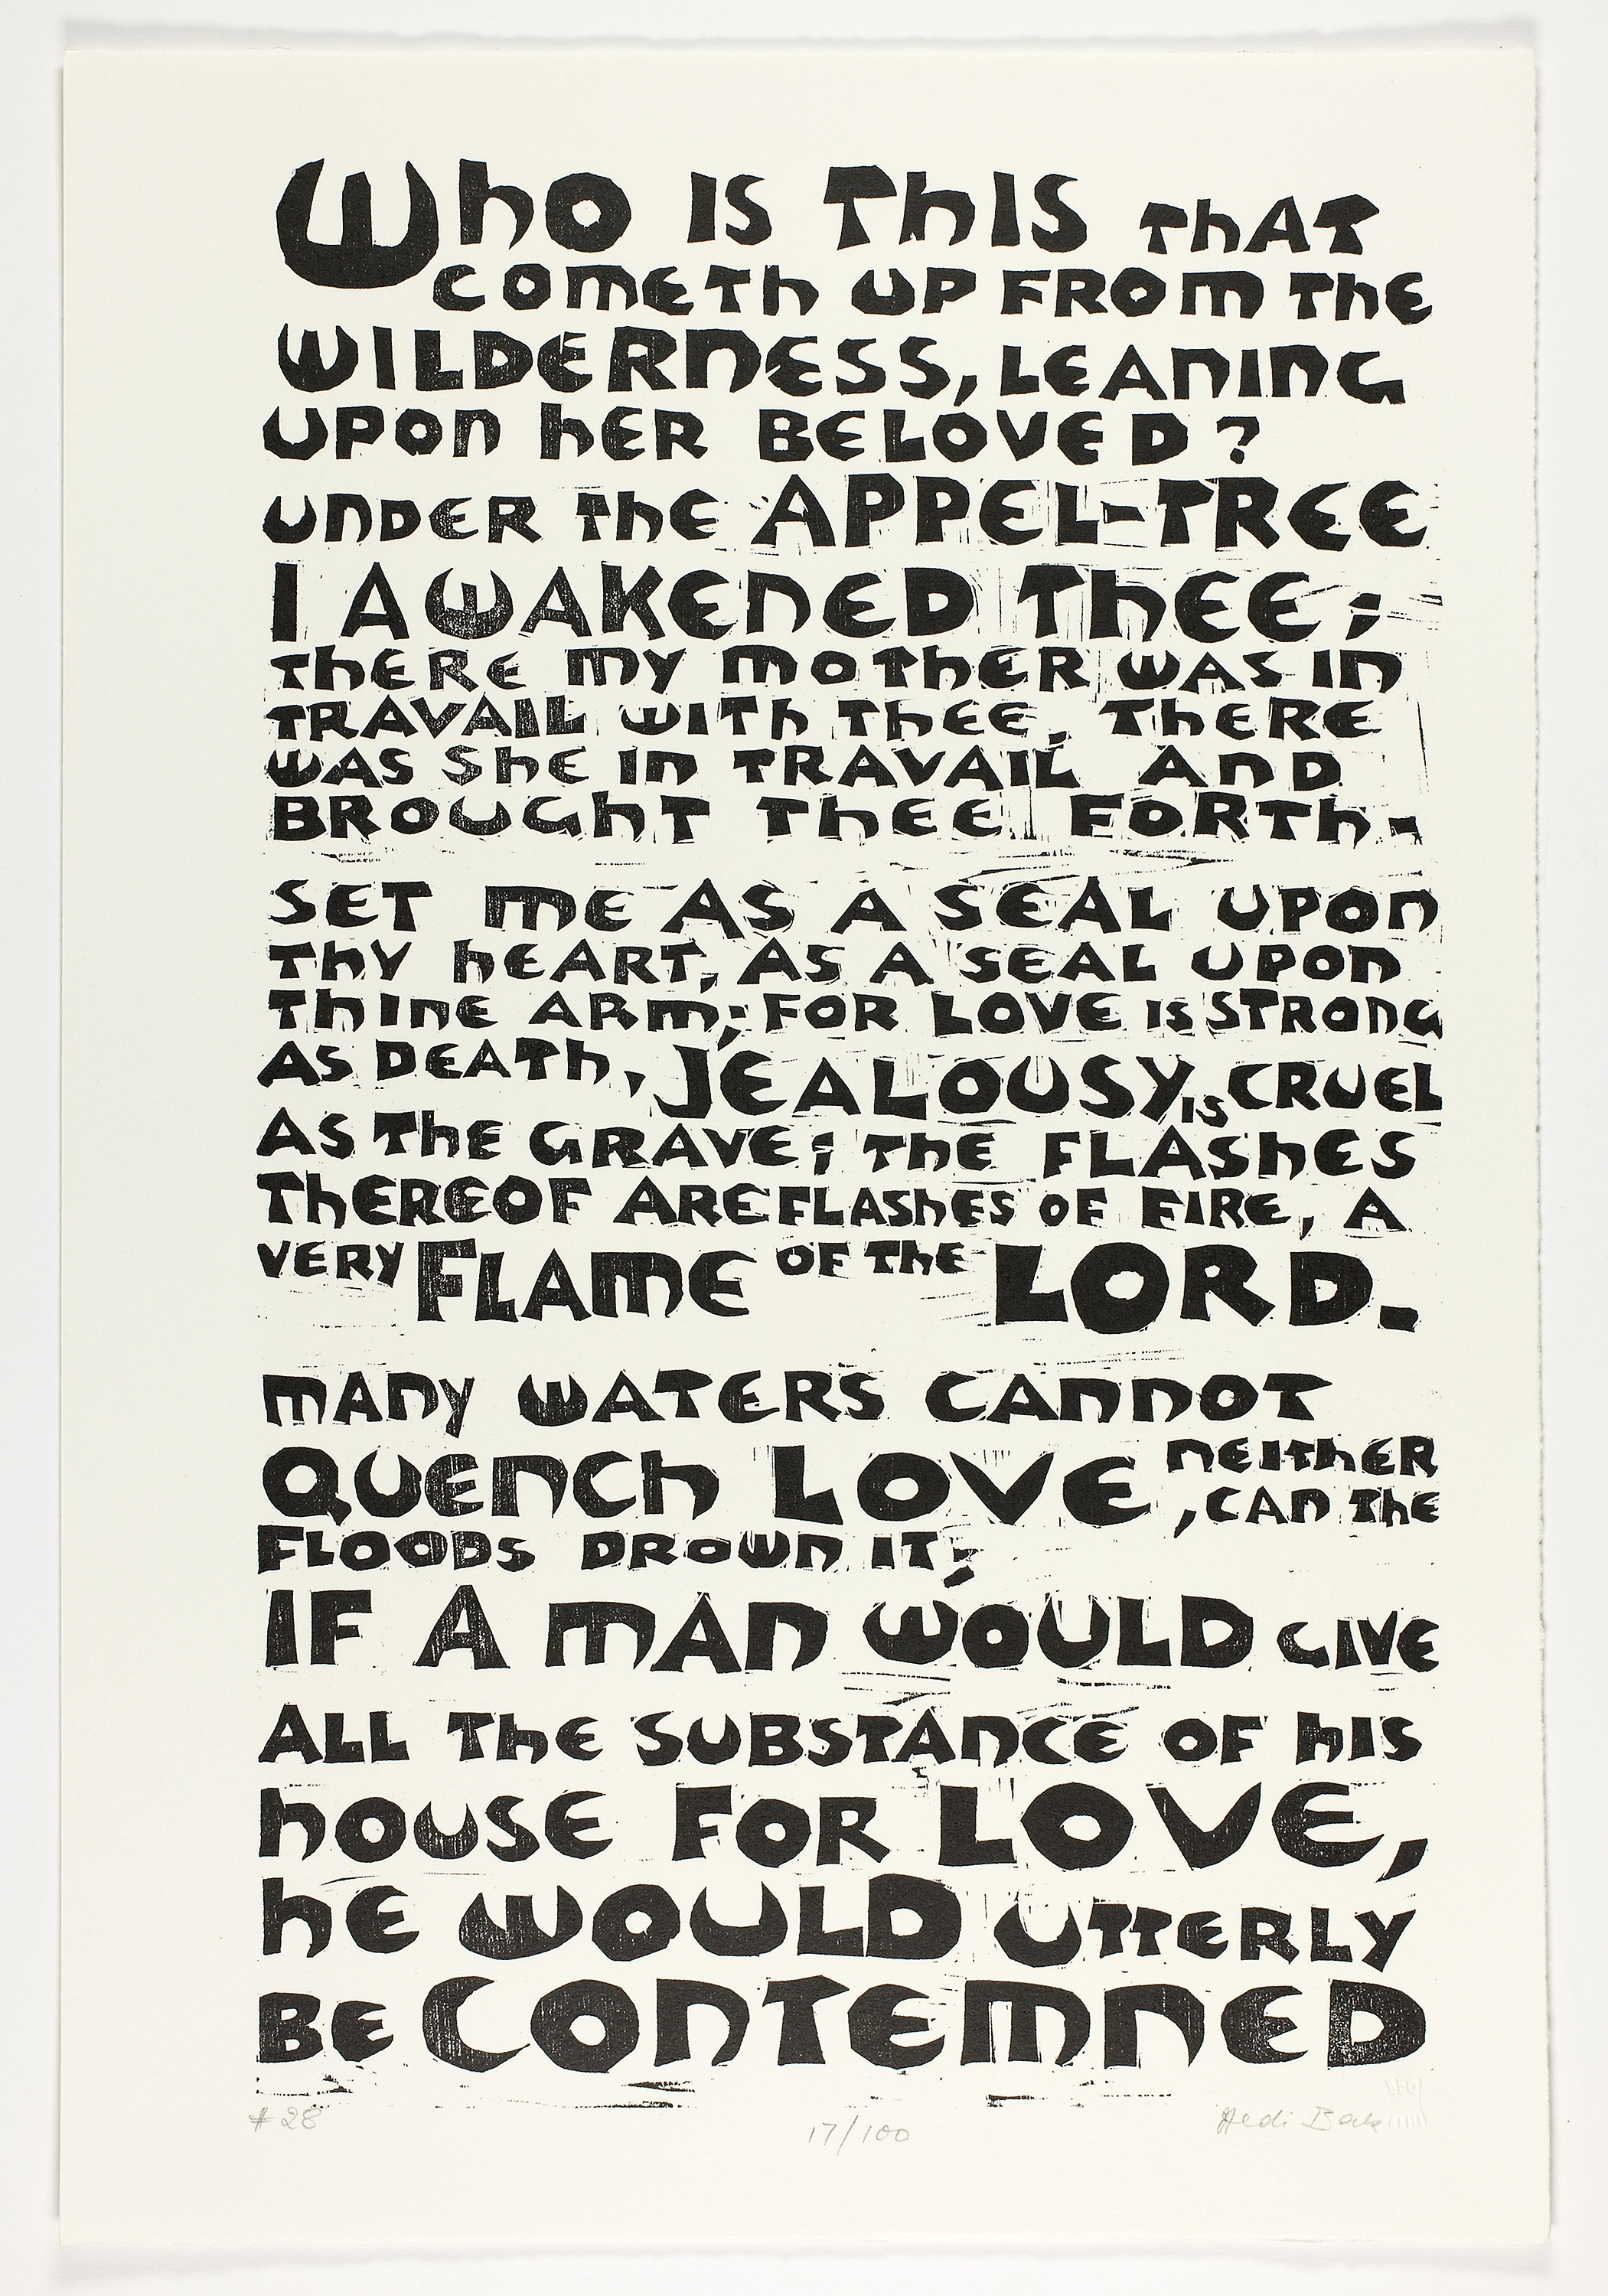 Who IS ThIS ThAT
COMETh UP FROM ThE
WILDERNESS, LEANING
UPON hER BELOVED?
UNDER ThE APPEL-TREE
I AWAKENED ThEE;
ThERE MY MOThER WAS IN
TRAVAIL WITh ThEE, ThERE
WAS ShE IN TRAVAIL AND
BROUGhT ThEE FORTh.
SET ME AS A SEAL UPON
ThY hEART, AS A SEAL UPON
ThINE ARM; FOR LOVE IS STRONG
AS DEATh, JEALOUSY IS CRUEL
AS ThE GRAVE; ThE FLAShES
ThEREOF ARE FLAShES OF FIRE, A
VERY FLAME OF ThE LORD.
MANY WATERS CANNOT
QUENCh LOVE, NEIThER CAN ThE
FLOODS DROWN IT;
IF A MAN WOULD GIVE
ALL ThE SUBSTANCE OF hIS
hOUSE FOR LOVE,
hE WOULD UTTERLY
BE CONTEMNED
# 28 17/100 Hedi Bak